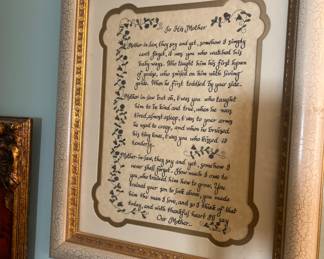 To His Mother
Mother-in-law, they say and yet, somehow I simply
can't forget, it was you who watched his
baby ways. Who taught him his first hymn
of praise, who smiled on him with loving
pride. When he first toddled by your side..
Mother-in-law but oh, t'was you who taught
him to be kind and true, when he was
tired, almost asleep, t'was to your arms
he used to creep, and when he bruised
his tiny knee, t'was you who kissed it
tenderly..
Mother-in-law, they say and yet, somehow I
never shall forget.. How much I owe to
you, who trained him how to grow, You
trained your son to look above, you made
him the man I love, and so I think of that
today, and with thankful heart I'll say
Our Mother..